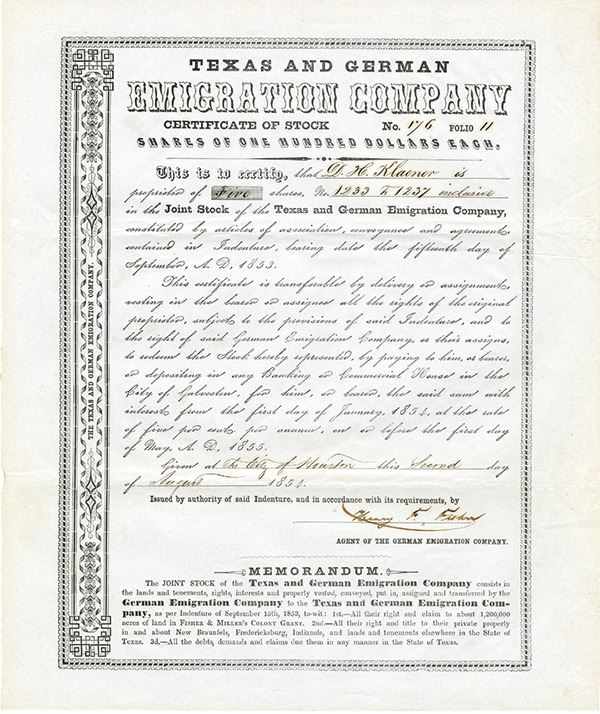 TEXAS AND GERMAN
EMIGRATION COMPANY
CERTIFICATE OF STOCK No. 176 FOLIO 11
SHARES OF ONE HUNDRED DOLLARS EACH.
This is to certify, that D. H. Klaener is
proprietor of Five shares, No. 1233 to 1237 inclusive
in the Joint Stock of the Texas and German Emigration Company,
constituted by articles of association, conveyance and agreement
contained in Indenture, bearing date the fifteenth day of
September, A. D. 1853.
This certificate is transferable by delivery or assignment
vesting in the bearer or assignee all the rights of the original
proprietor, subject to the provisions of said Indenture, and to
the right of said German Emigration Company, or their assigns,
to redeem the Stock hereby represented, by paying to him, or bearer,
or depositing in any Banking or Commercial House in the
City of Galveston, for him, or bearer, the said sum with
interest from the first day of January, 1854, at the rate
of five per cent. per annum, on or before the first day
of May, A. D. 1855.
Given at the City of Houston this Second day
of August 1854.
Issued by authority of said Indenture, and in accordance with its requirements, by
Henry F. Fisher
AGENT OF THE GERMAN EMIGRATION COMPANY.
MEMORANDUM.
The JOINT STOCK of the Texas and German Emigration Company consists in
the lands and tenements, rights, interests and property vested, conveyed, put in, assigned and transferred by the
German Emigration Company to the Texas and German Emigration Com-
pany, as per Indenture of September 15th, 1853, to-wit: 1st.—All their right and claim to about 1,200,000
acres of land in FISHER & MILLER'S COLONY GRANT. 2nd.—All their right and title to their private property
in and about New Braunfels, Fredericksburg, Indianola, and lands and tenements elsewhere in the State of
Texas. 3d.—All the debts, demands and claims due them in any manner in the State of Texas.
THE TEXAS AND GERMAN EMIGRATION COMPANY.